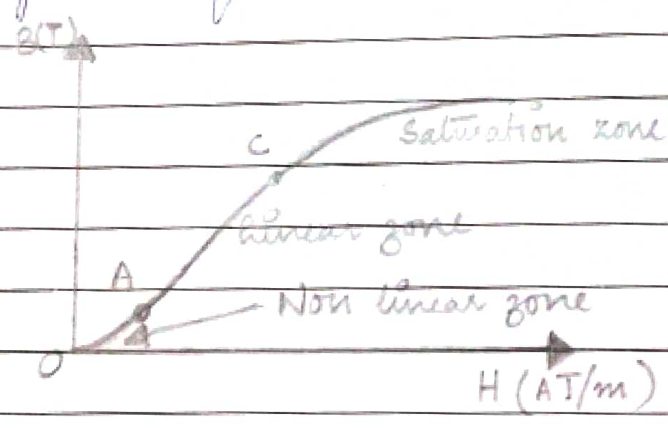 B(T)
C
Saturation zone
Linear zone
A
Non linear zone
O
H (AT/m)